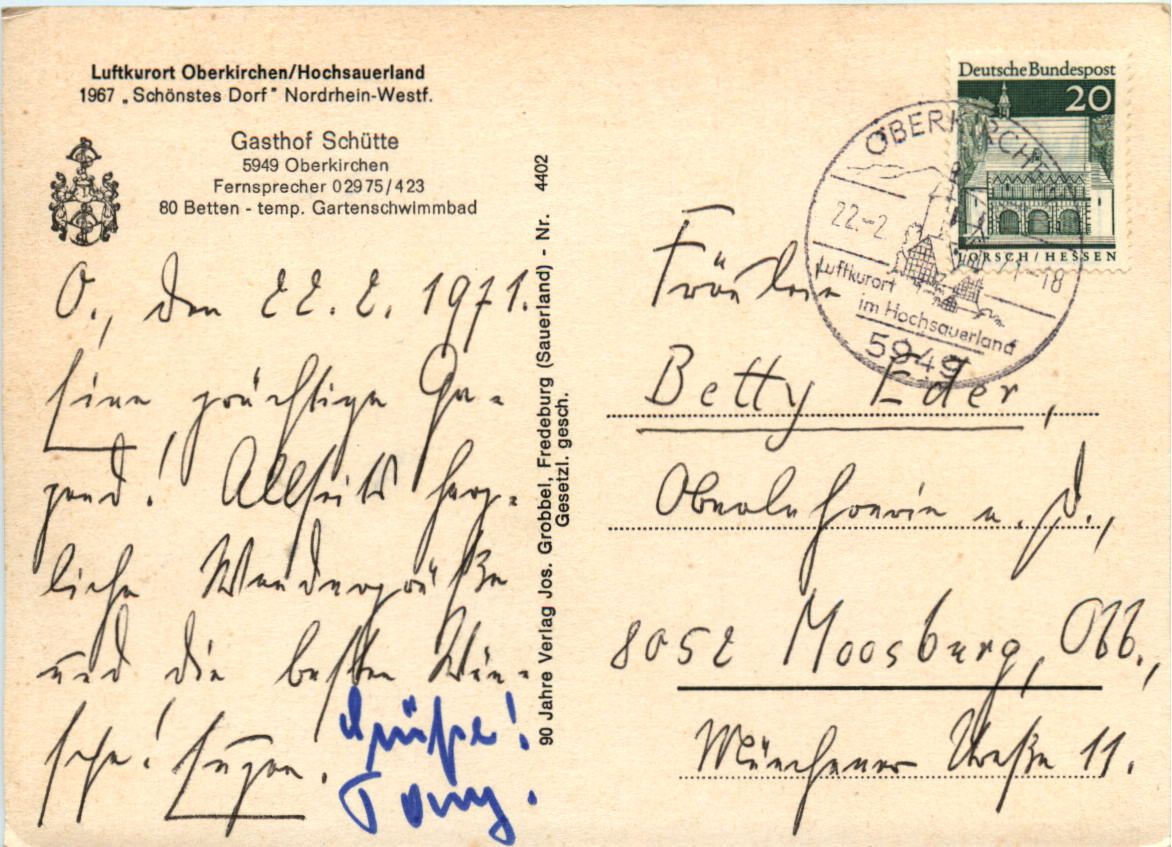 Luftkurort Oberkirchen/Hochsauerland
1967 „Schönstes Dorf" Nordrhein-Westf.
Gasthof Schütte
5949 Oberkirchen
Fernsprecher 0 29 75 / 4 23
80 Betten - temp. Gartenschwimmbad
O., den 22. 2. 1971.
Eine prächtige Ge-
gend! Allseits herz-
liche Wandergrüße
und die besten Wün-
sche! Eugen.
Grüße!
Tony.
90 Jahre Verlag Jos. Grobbel, Fredeburg (Sauerland) - Nr. 4402
Gesetzl. gesch.
Deutsche Bundespost
20
LORSCH / HESSEN
OBERKIRCHEN
22.-2.71-18
Luftkurort
im Hochsauerland
5949
Fräulein
Betty Eder,
Oberlehrerin a. D.,
8052 Moosburg, Obb.,
Münchener Straße 11.